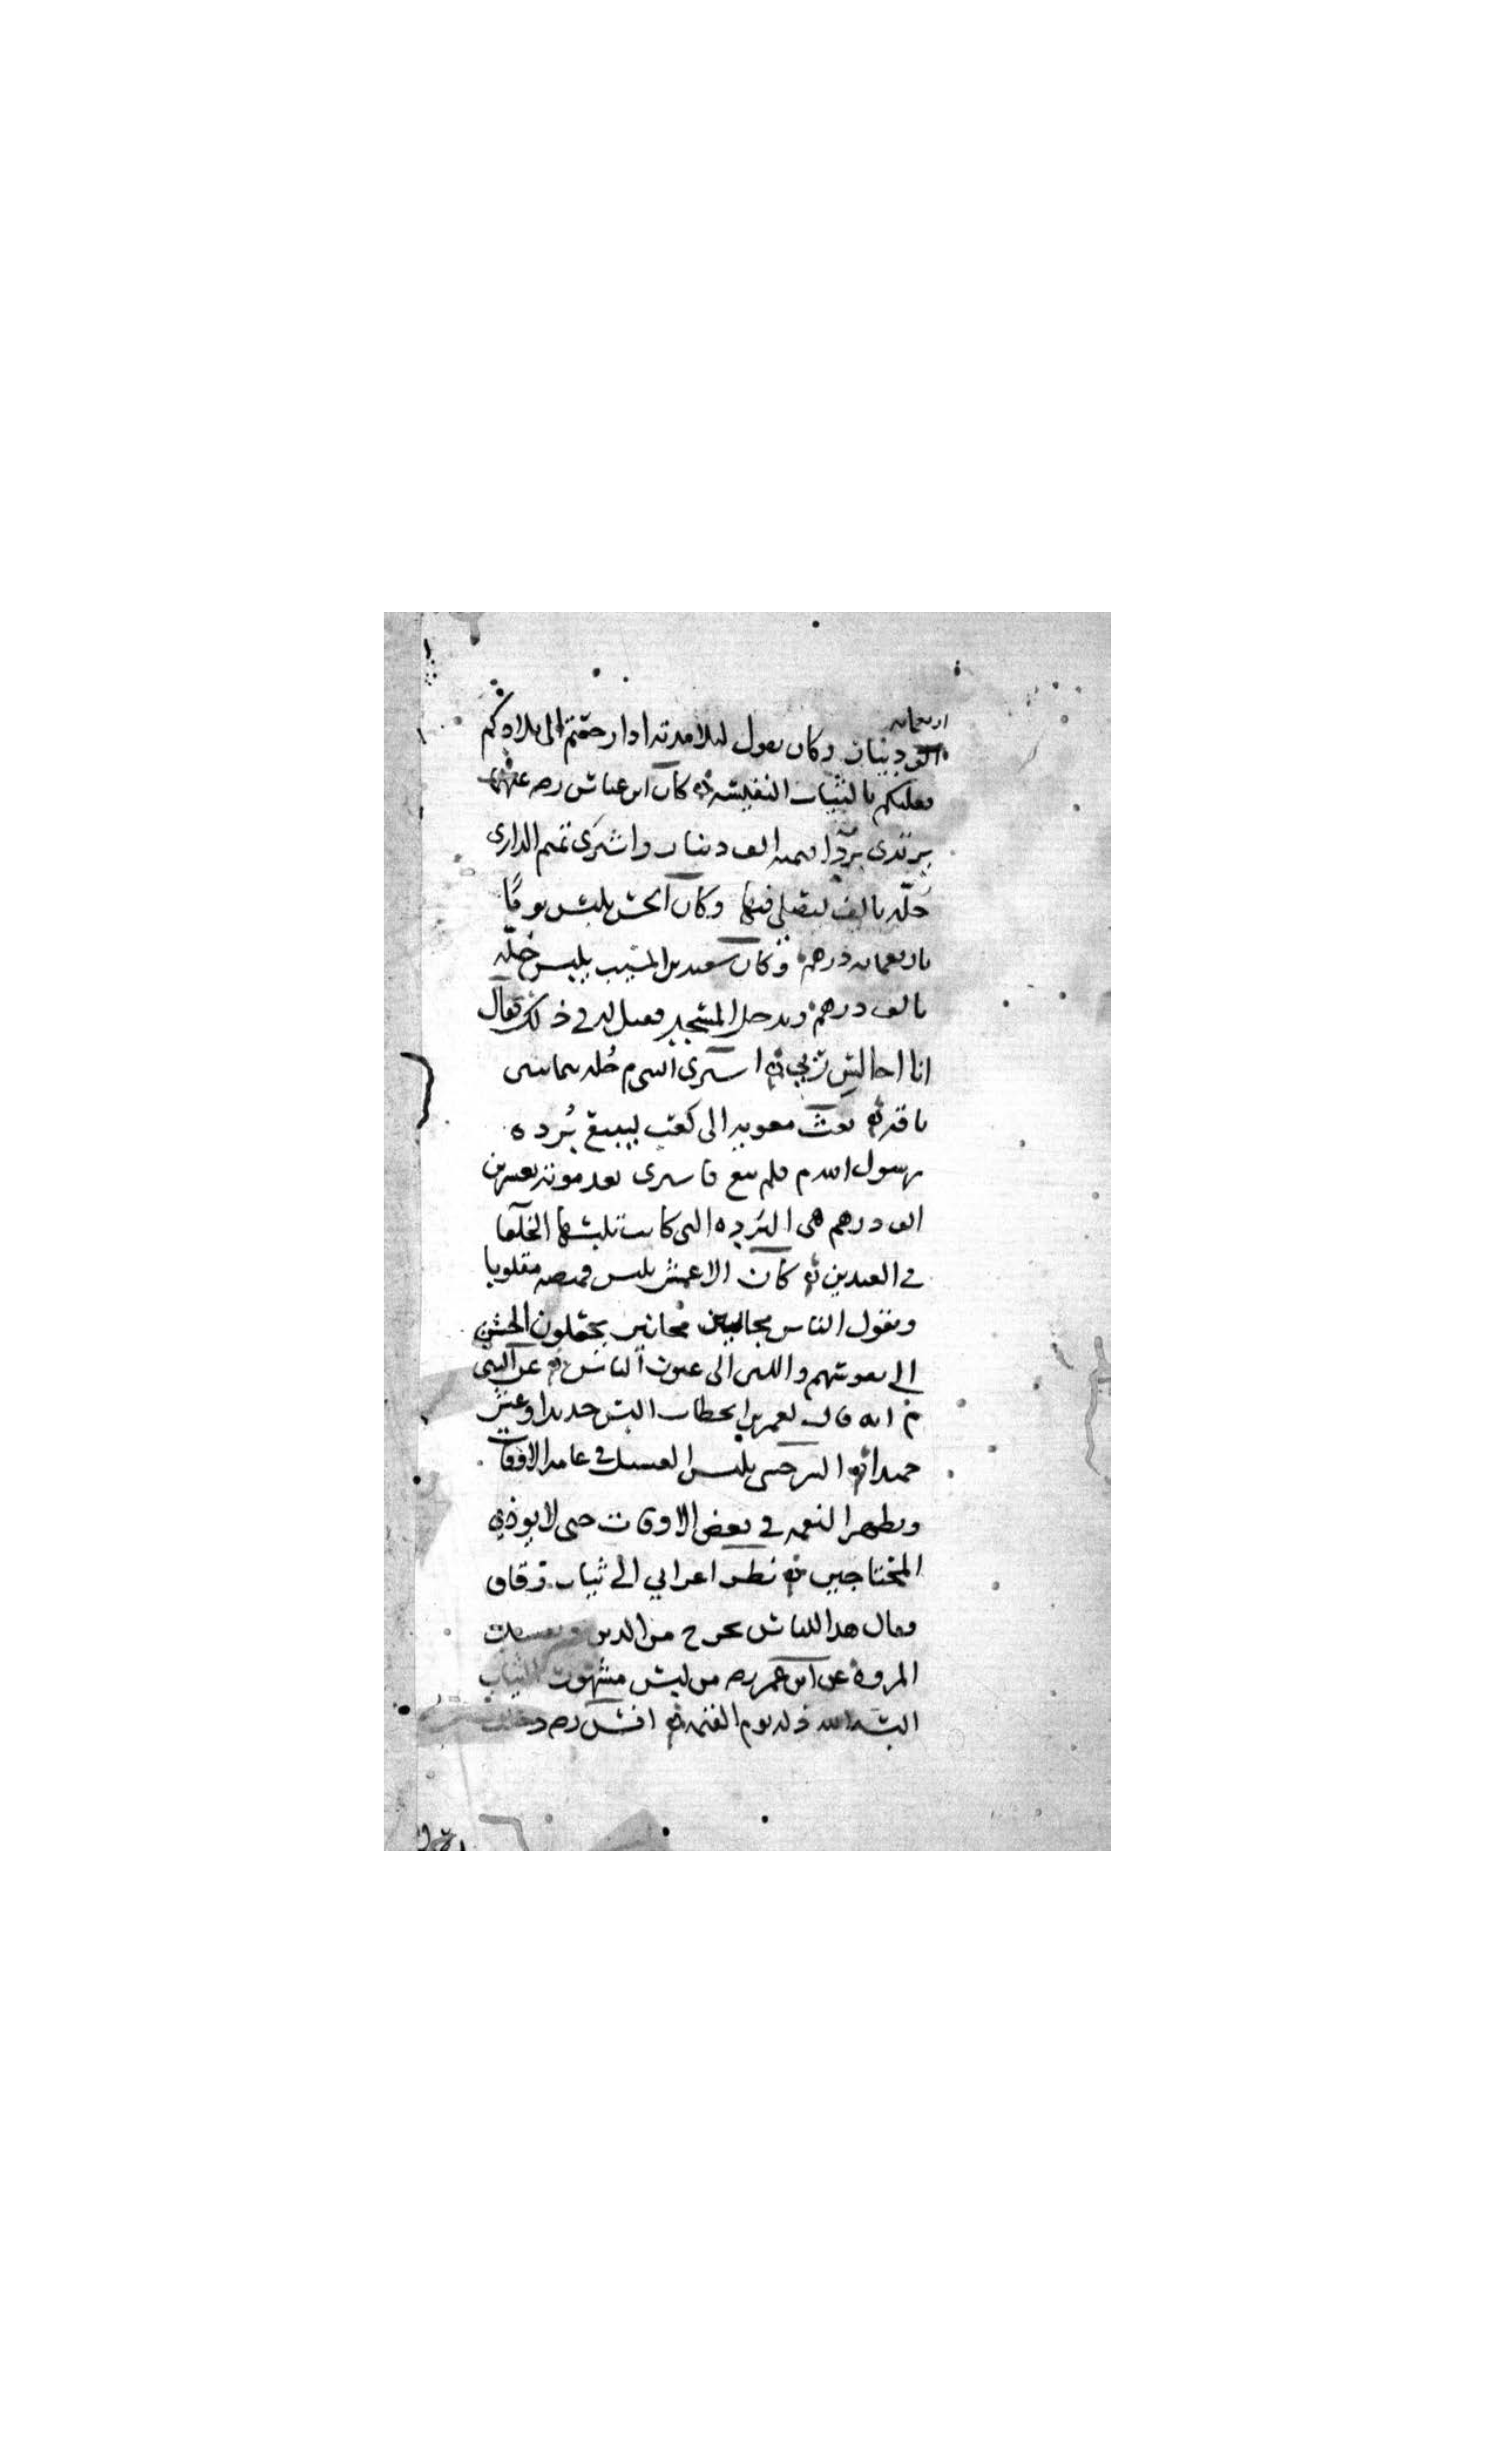 اربعمائه
دينار وكان يقول لتلامذته اذا رجعتم الى بلادكم
فعليكم بالثياب النفيسه كان ابن عباس رصه عنهما
يرتدي بردا قيمته الف دينار واشترى تميم الداري
حلّه بالف ليصلي فيها وكان الحسن يلبس ثوبًا
باربعمائه درهم وكان سعيد بن المسيب يلبس حلّه
بالف درهم ويدخل المسجد فقيل له في ذلك فقال
انا اجالس ربي اشترى النبي م حُله بثمانين
ناقه بعث معويه الى كعب ليبيع بُرده
رسول الله م فلم يبع فاشترى بعد موته بعشرين
الف درهم هي البُرده التي كانت تلبسها الخلفا
في العيدين كان الاعمش يلبس قميصه مقلوبا
ويقول الناس مجانين يجعلون الخشن
الى بيوتهم واللين الى عيون الناس عن النبي
م انه قال لعمر بن الخطاب البس جديدا وعش
حميدا السرخسي يلبس الغسيل في عامه الاوقات
ويظهر النعمه في بعض الاوقات حتى لا يوذي
المحتاجين نظر اعرابي الى ثياب رقاق
فقال هذا اللباس يخرج من الدين
المروه عن ابن عمر رصه من لبس مشهور الثياب
البسه الله ذله يوم القيمه انس رصه